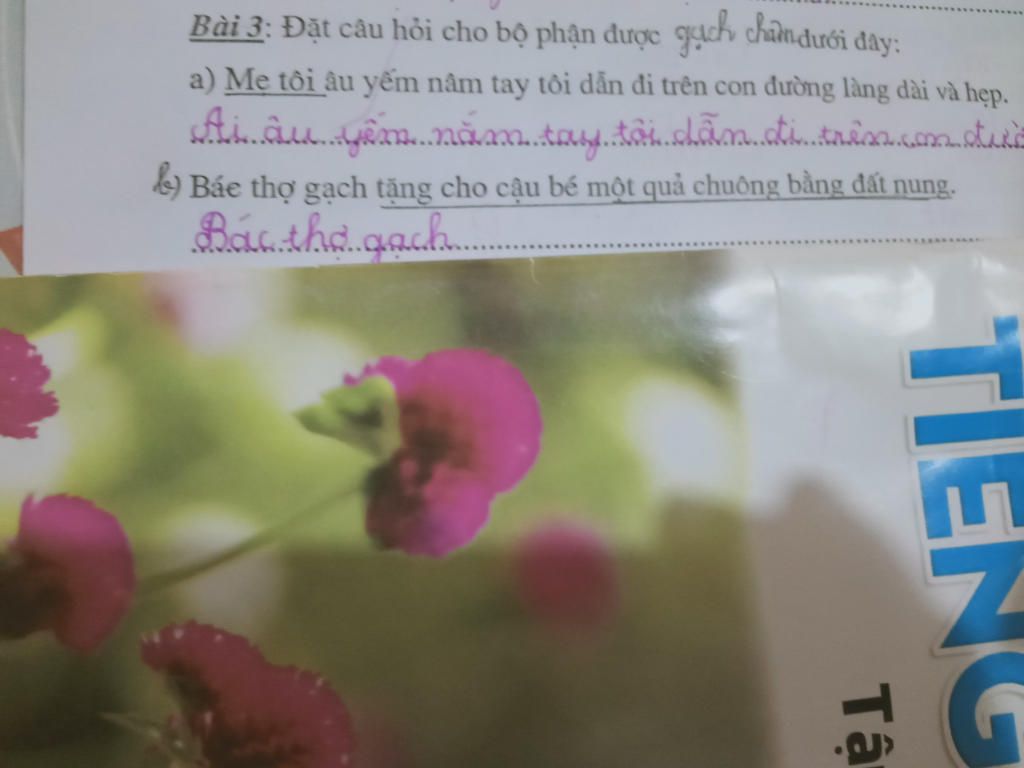 Bài 3: Đặt câu hỏi cho bộ phận được gạch chân dưới đây:
a) Mẹ tôi âu yếm nâm tay tôi dẫn đi trên con đường làng dài và hẹp.
Ai âu yếm nắm tay tôi dẫn đi trên con
b) Báe thợ gạch tặng cho cậu bé một quả chuông bằng đất nung.
Bác thợ gạch
TIENG